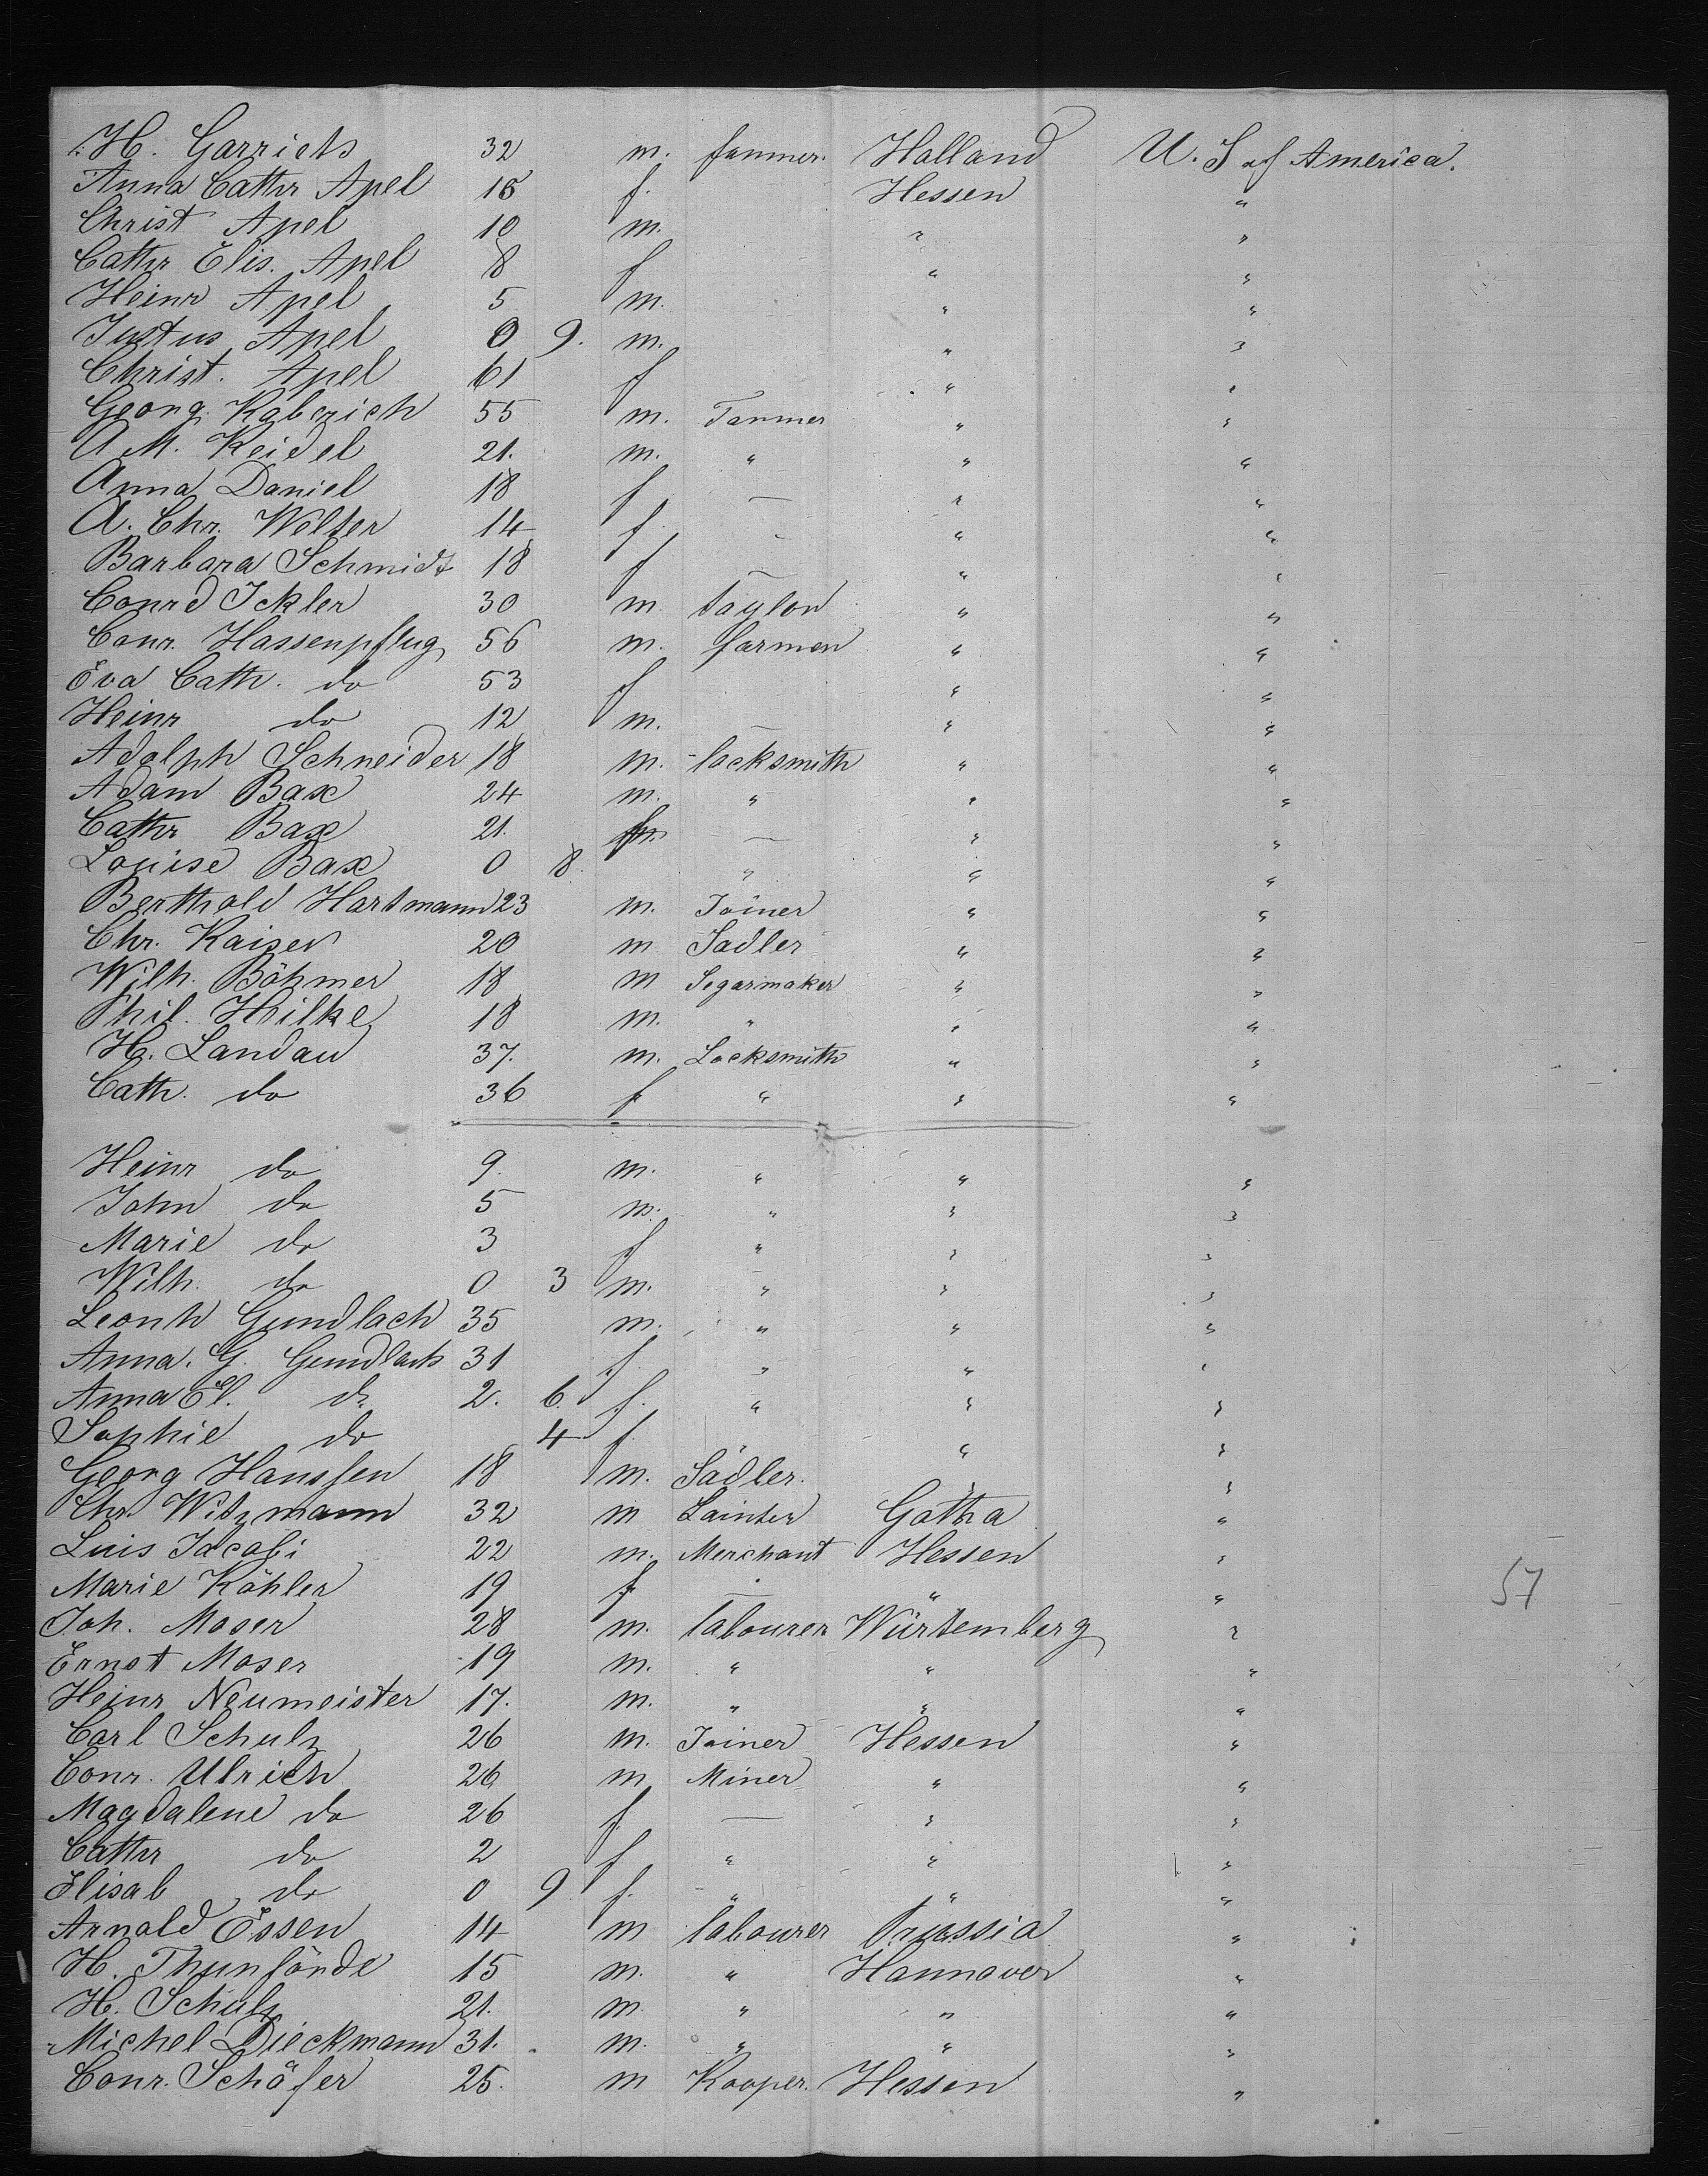 H. Garriets 32 m. farmer. Holland U. S of America.
Anna Cathr Apel 16 f. Hessen "
Christ Apel 10 m. " "
Cathr Elis. Apel 8 f " "
Heinr Apel 5 m. " "
Justus Apel 0 9. m. " "
Christ. Apel 61 f " "
Georg Kaberich 55 m. Farmer " "
A M. Keidel 21. m. " " "
Anna Daniel 18 f — " "
A. Chr. Wolter 14 f — " "
Barbara Schmidt 18 f — " "
Conrd Ickler 30 m. taylor " "
Conr. Hassenpflug 56 m. farmer " "
Eva Cath. do 53 f " "
Heinr do 12 m. — " "
Adolph Schneider 18 m. locksmith " "
Adam Bax 24 m. " " "
Cathr Bax 21. f — " "
Louise Bax 0 8. " " "
Berthold Hartmann 23 m. Joiner " "
Chr. Kaiser 20 m Sadler " "
Wilh. Böhmer 18 m Segarmaker " "
Phil. Heilke 18 m. " " "
H. Landau 37. m. Locksmith " "
Cath. do 36 f " " "
Heinr do 9. m. " " "
John do 5 m. " " "
Marie do 3 f " " "
Wilh. do 0 3 m. " " "
Leonh Gundlach 35 m. " " "
Anna. G. Gundlach 31 f. " " "
Anna El. do 2. 6. f. " " "
Sophie do 4 f. " "
Georg Hanssen 18 m. Sadler. "
Chr. Witzmann 32 m Painter Gotha "
Luis Jacobi 22 m. Merchant Hessen "
Marie Köhler 19 f — " " 57
Joh. Moser 28 m. labourer Würtemberg "
Ernst Moser 19 m. " " "
Heinr Neumeister 17. m. " " "
Carl Schulz 26 m. Joiner Hessen "
Conr. Ulrich 26 m Miner " "
Magdalene do 26 f — " "
Cathr do 2 f " " "
Elisab do 0 9 f. " " "
Arnold Essen 14 m labourer Prussia "
H. Thunförde 15 m. " Hannover "
H. Schulz 21. m " " "
Michel Dieckmann 31. m. " " "
Conr. Schäfer 25. m Kooper. Hessen "